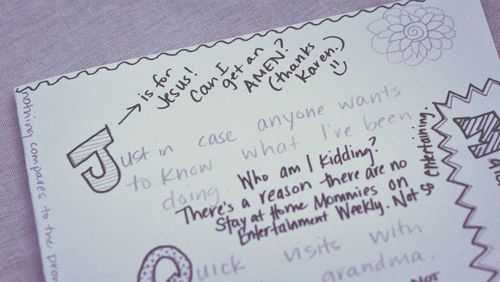 is for
Jesus!
Can I
get an
AMEN?
(thanks
Karen.)
Just in case anyone wants
to know what I've been
doing.
Who am I kidding?
There's a reason there are no
Stay at Home Mommies on
Entertainment Weekly. Not so entertaining.
Quick visits with
grandma.
nothing compares to the